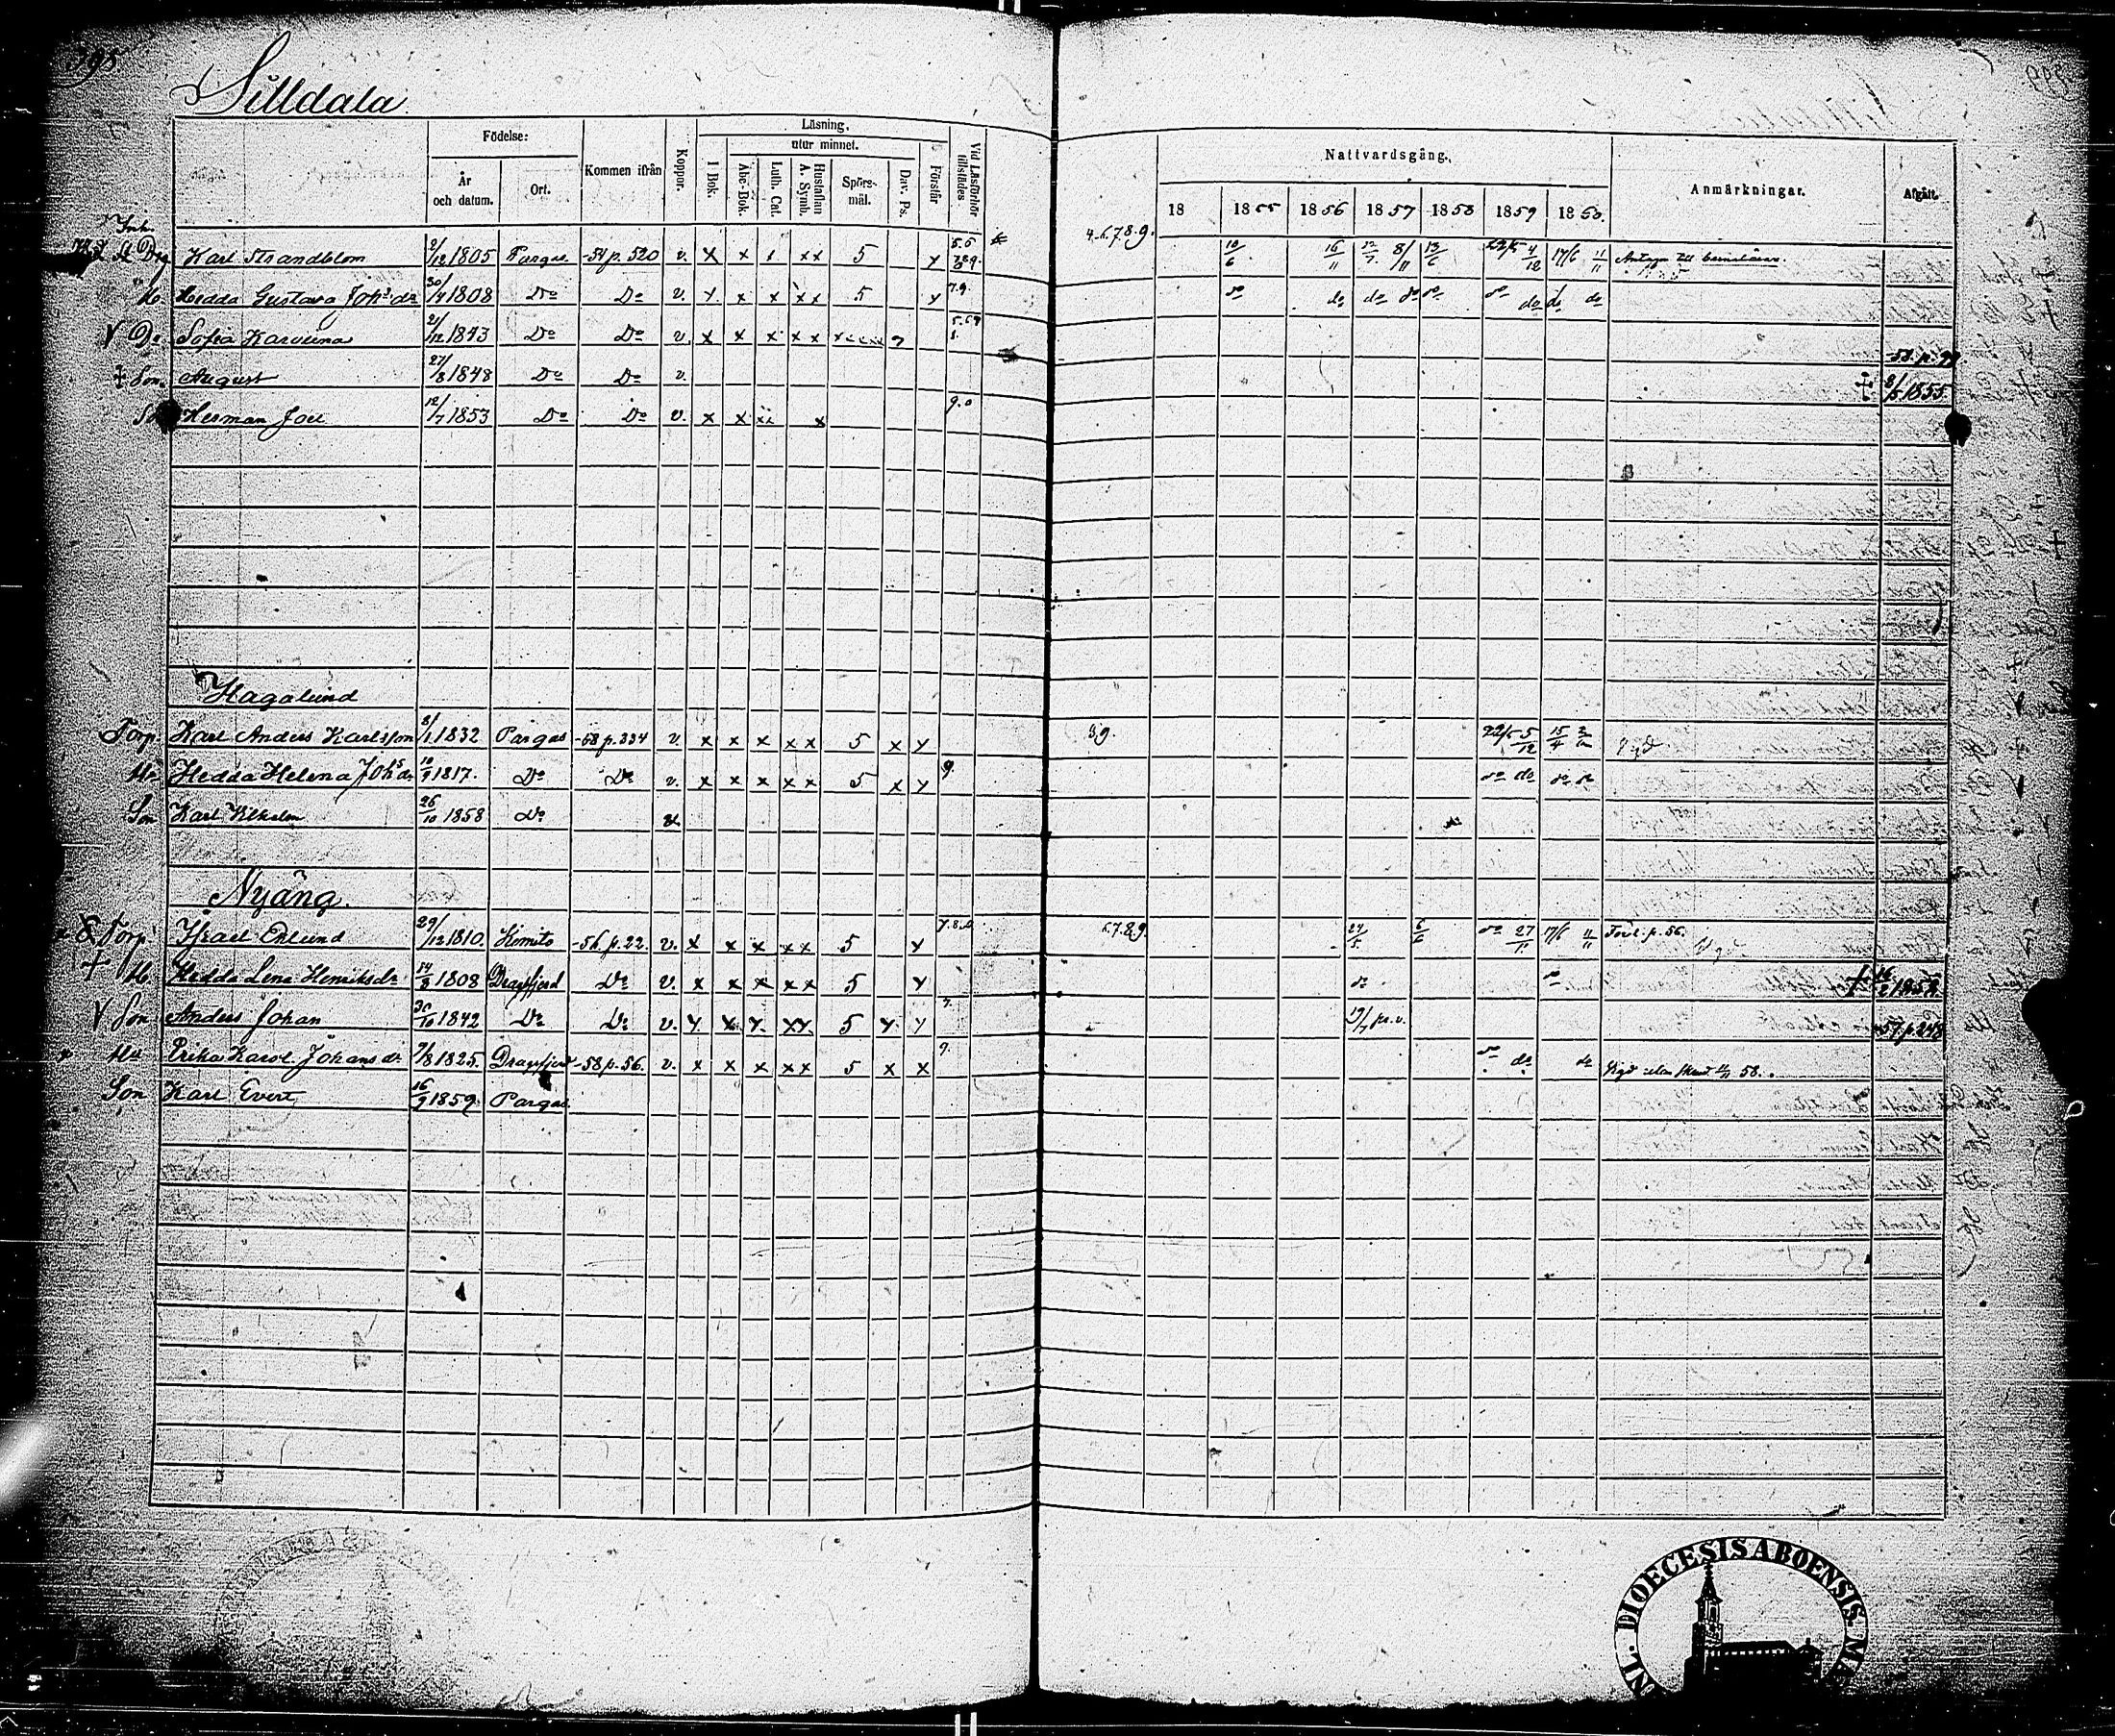 398
Silldala
Födelse:
Läsning.
utur minnet.
År och datum.
Ort.
Kommen ifrån
Koppor.
I Bok.
Abc-Bok.
Luth. Cat.
Hustaflan A. Symb.
Spörsmål.
Dav. Ps.
Förstår
Vid Läsförhör tillstädes
Nattvardsgång.
Anmärkningar.
Afgått.
18 1855 1856 1857 1858 1859 1860.
Inh.
Karl Strandblom 2/12 1805 Pargas -54 p. 520 v. x x x x 5 y 4.6.7.8.9. 10/6 16/11 8/11 13/6 4/12 17/6 11/11 Antagen till barnalärare.
H. Hedda Gustava Joh:s dr 30/4 1808 Do Do v. y. x x x x 5 y 7.9. do do do do do do do do
V Dr Sofia Karolina 21/12 1843 Do Do v. x x x x x -58. p. 99
‡ Son. August 27/8 1848 Do Do v. ‡ 8/5 1855.
Herman Joel 12/7 1853 Do Do v. x x x x x 9.0
Hagalund
Torp. Karl Anders Karlsson 8/1 1832 Pargas -58 p. 334 v. x x x x x 5 x y 8.9. 22/5 5/12 15/4
Hu Hedda Helena Joh:s dr 10/9 1817. Do Do v. x x x x x 5 x y 9. do do do do
Son Karl Vilhelm 26/10 1858 Do
Nyäng.
Torp. Israel Enlund 29/12 1810. Kimito -56. p. 22. v. x x x x x 5 y 7.8.0 6.7.8.9. 24/5. 6/6 do 27/11 17/6 11/11 Förl. p. 56.
+ H. Hedda Lena Henriksdr 14/3 1808 Dragsfjerd Do v. x x x x x 5 y do do † 16/2 1858.
V Son Anders Johan 30/10 1842 Do Do v. y. x y. x y. 5 y. y 7. 19/7 pr. v. -57 p. 248
Hu Erika Karol. Johans dr 7/8 1825. Dragsfjerd -58 p. 56. v. x x x x x 5 x x 9. do do do Vigd 58.
Son Karl Evert 16/9 1859. Pargas
DIOECESIS ABOENSIS